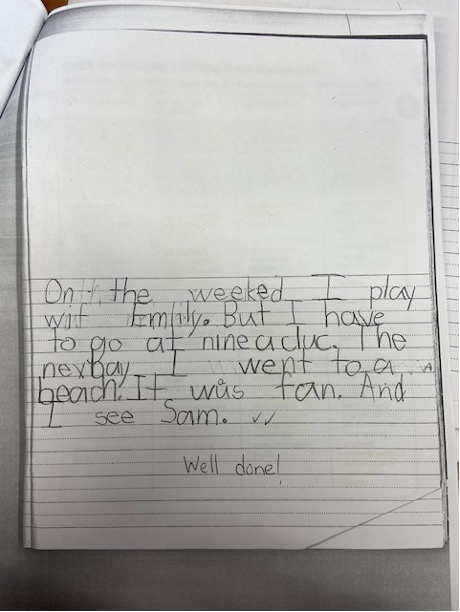 On the weeked I play
wit Emlily. But I have
to go at nine a cluc. The
nexbay I went to a
beach. It was fan. And
I see Sam.
Well done!